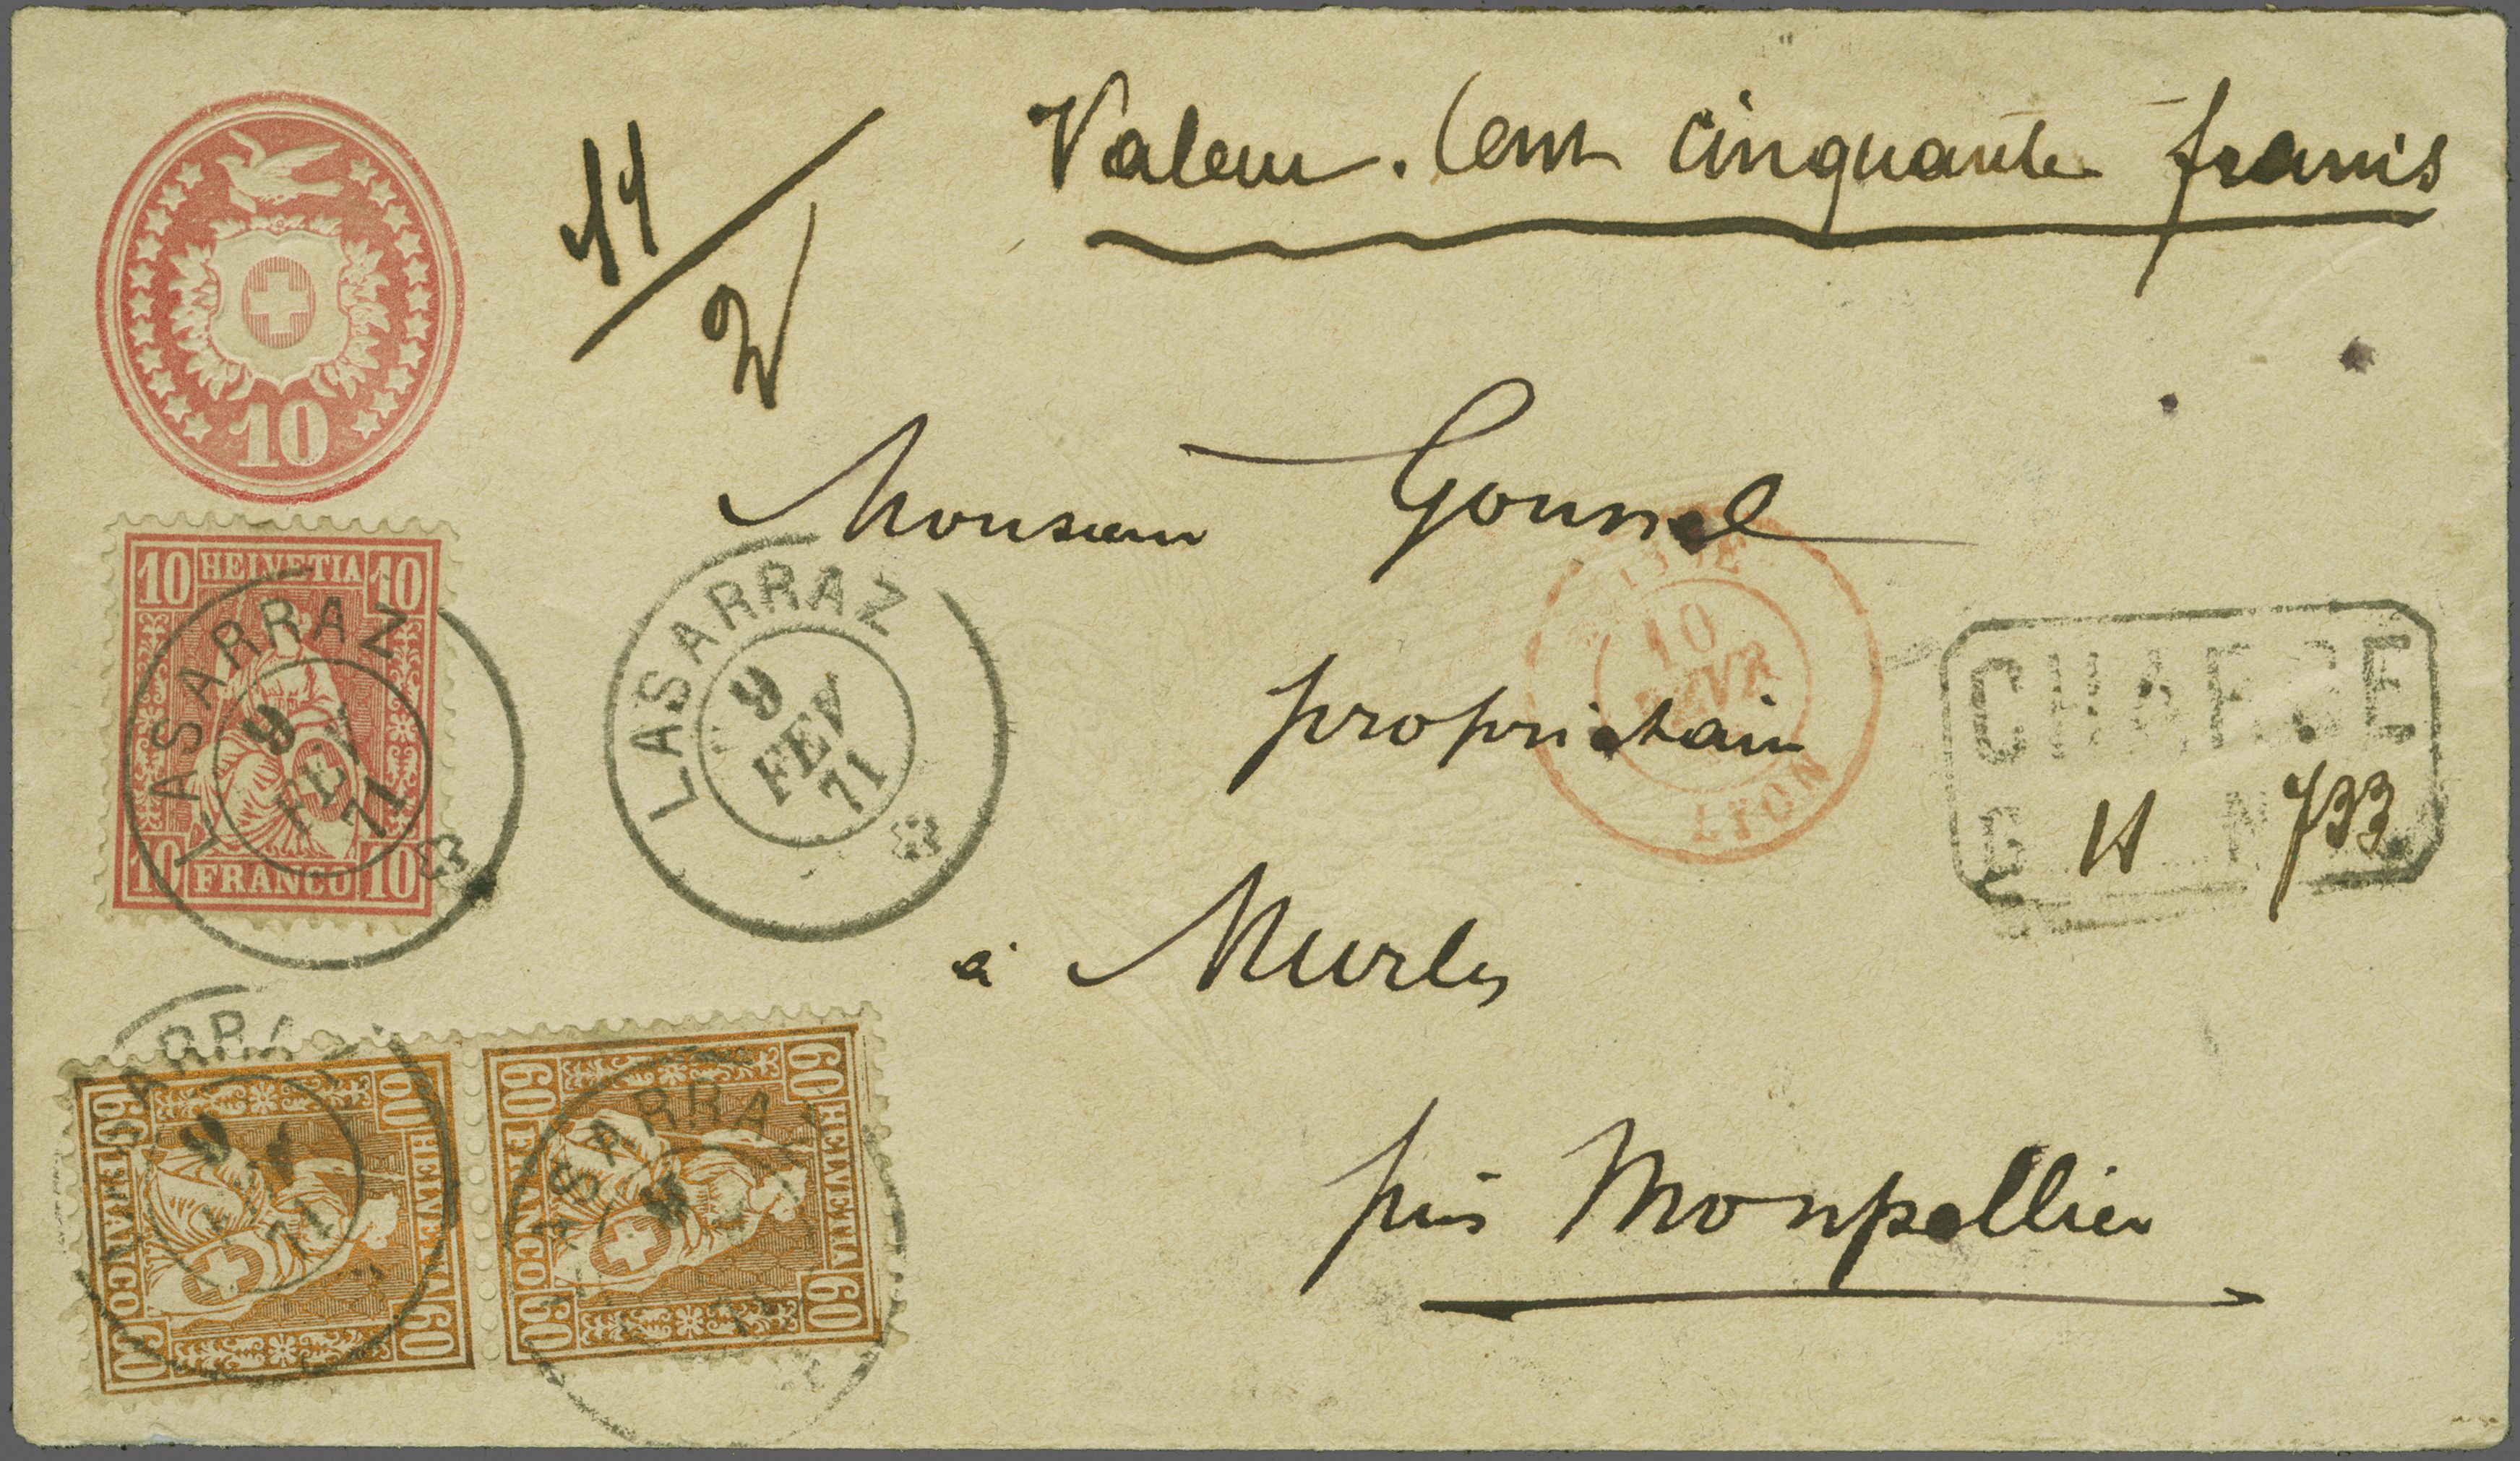 Valeur. Cent cinquante francs
11/2
10
Monsieur Goussel
propriétaire
à Murles
près Monpellier
10 HELVETIA 10
10 FRANCO 10
LASARRAZ
9
FEV
71
LASARRAZ
9
FEV
71
10
FEVR
LYON
CHARGE
G 11 N 733
60 HELVETIA 60
60 FRANCO 60
SARRAZ
9
71
60 HELVETIA 60
60 FRANCO 60
ASARRAZ